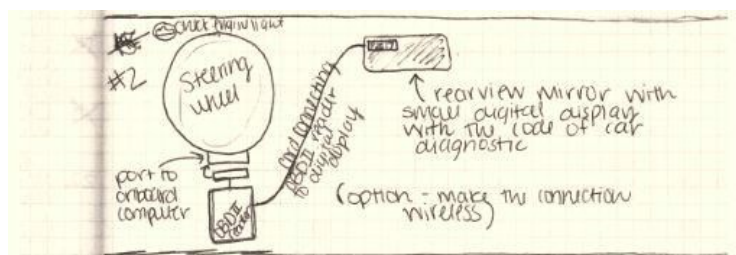 check engine light
#2
steering
wheel
port to
onboard
computer
OBDII
reader
cord connecting
OBDII reader
to digital
display
rearview mirror with
small digital display
with the code of car
diagnostic
(option - make the connection
wireless)